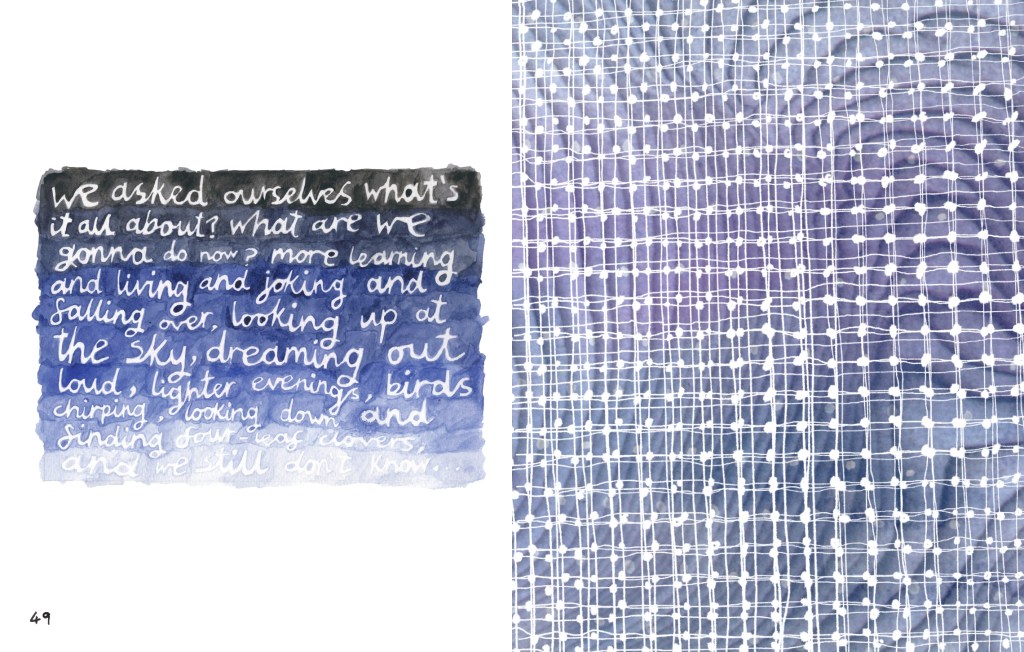 we asked ourselves what's
it all about? what are we
gonna do now? more learning
and living and joking and
falling over, looking up at
the sky, dreaming out
loud, lighter evenings, birds
chirping, looking down and
finding four-leaf clovers,
and we still don't know...
49